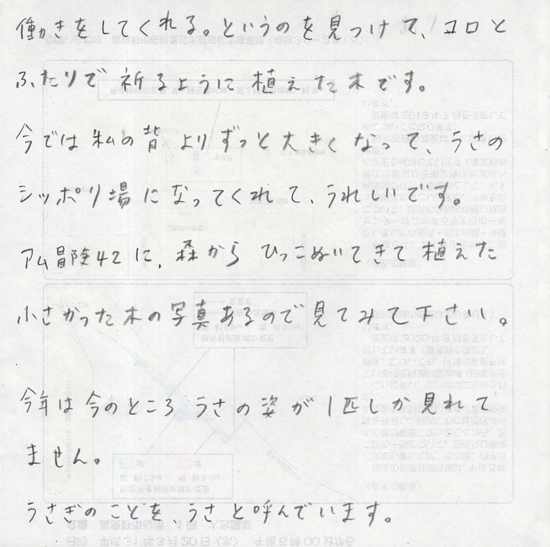 働きをしてくれる。というのを見つけて、コロと
ふたりで祈るように植えた木です。
今では私の背よりずっと大きくなって、うさの
シッポリ場になってくれて、うれしいです。
アム冒険42に、森からひっこぬいてきて植えた
小さかった木の写真あるので見てみて下さい。
今年は今のところうさの姿が1匹しか見れて
ません。
うさぎのことを、うさと呼んでいます。